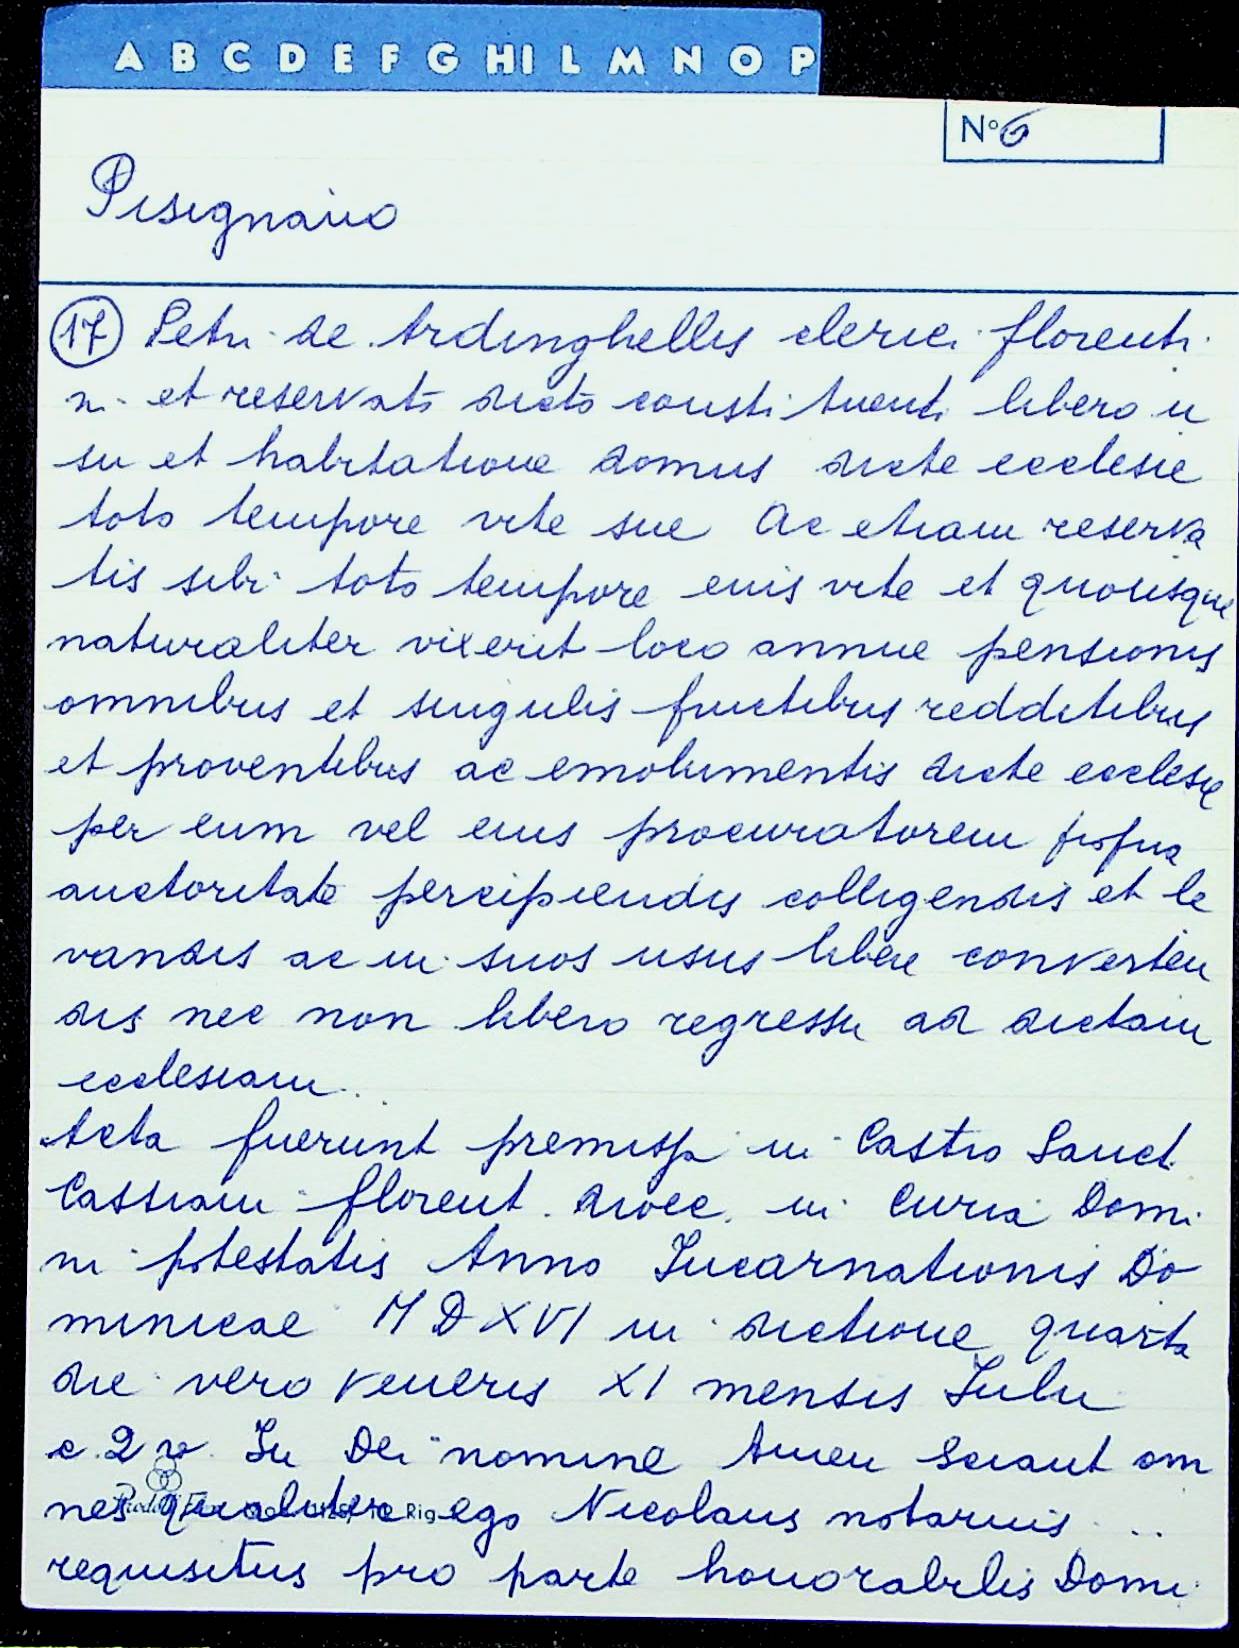 A B C D E F G HI L M N O P
N° 6
Pisignano
17 Petri de Ardinghellis clerici florenti
ni et reservato dicto constituenti libero u
su et habitatione domus dicte ecclesie
toto tempore vite sue Ac etiam reserva
tis sibi toto tempore eius vite et quousque
naturaliter vixerit loco annue pensionis
omnibus et singulis fructibus redditibus
et proventibus ac emolumentis dicte ecclesie
per eum vel eius procuratorem propria
auctoritate percipiendis colligendis et le
vandis ac in suos usus libere converten
dis nec non libero regressu ad dictam
ecclesiam.
Acta fuerunt premissa in Castro Sancti
Cassiani florent. dioec. in Curia Domi
ni potestatis Anno Incarnationis Do
minicae MDXVI in dictione quarta
die vero Veneris XI mensis Julii
c. 2 v. In Dei nomine Amen Sciant om
nes qualiter ego Nicolaus notarius ...
requisitus pro parte honorabilis Domi